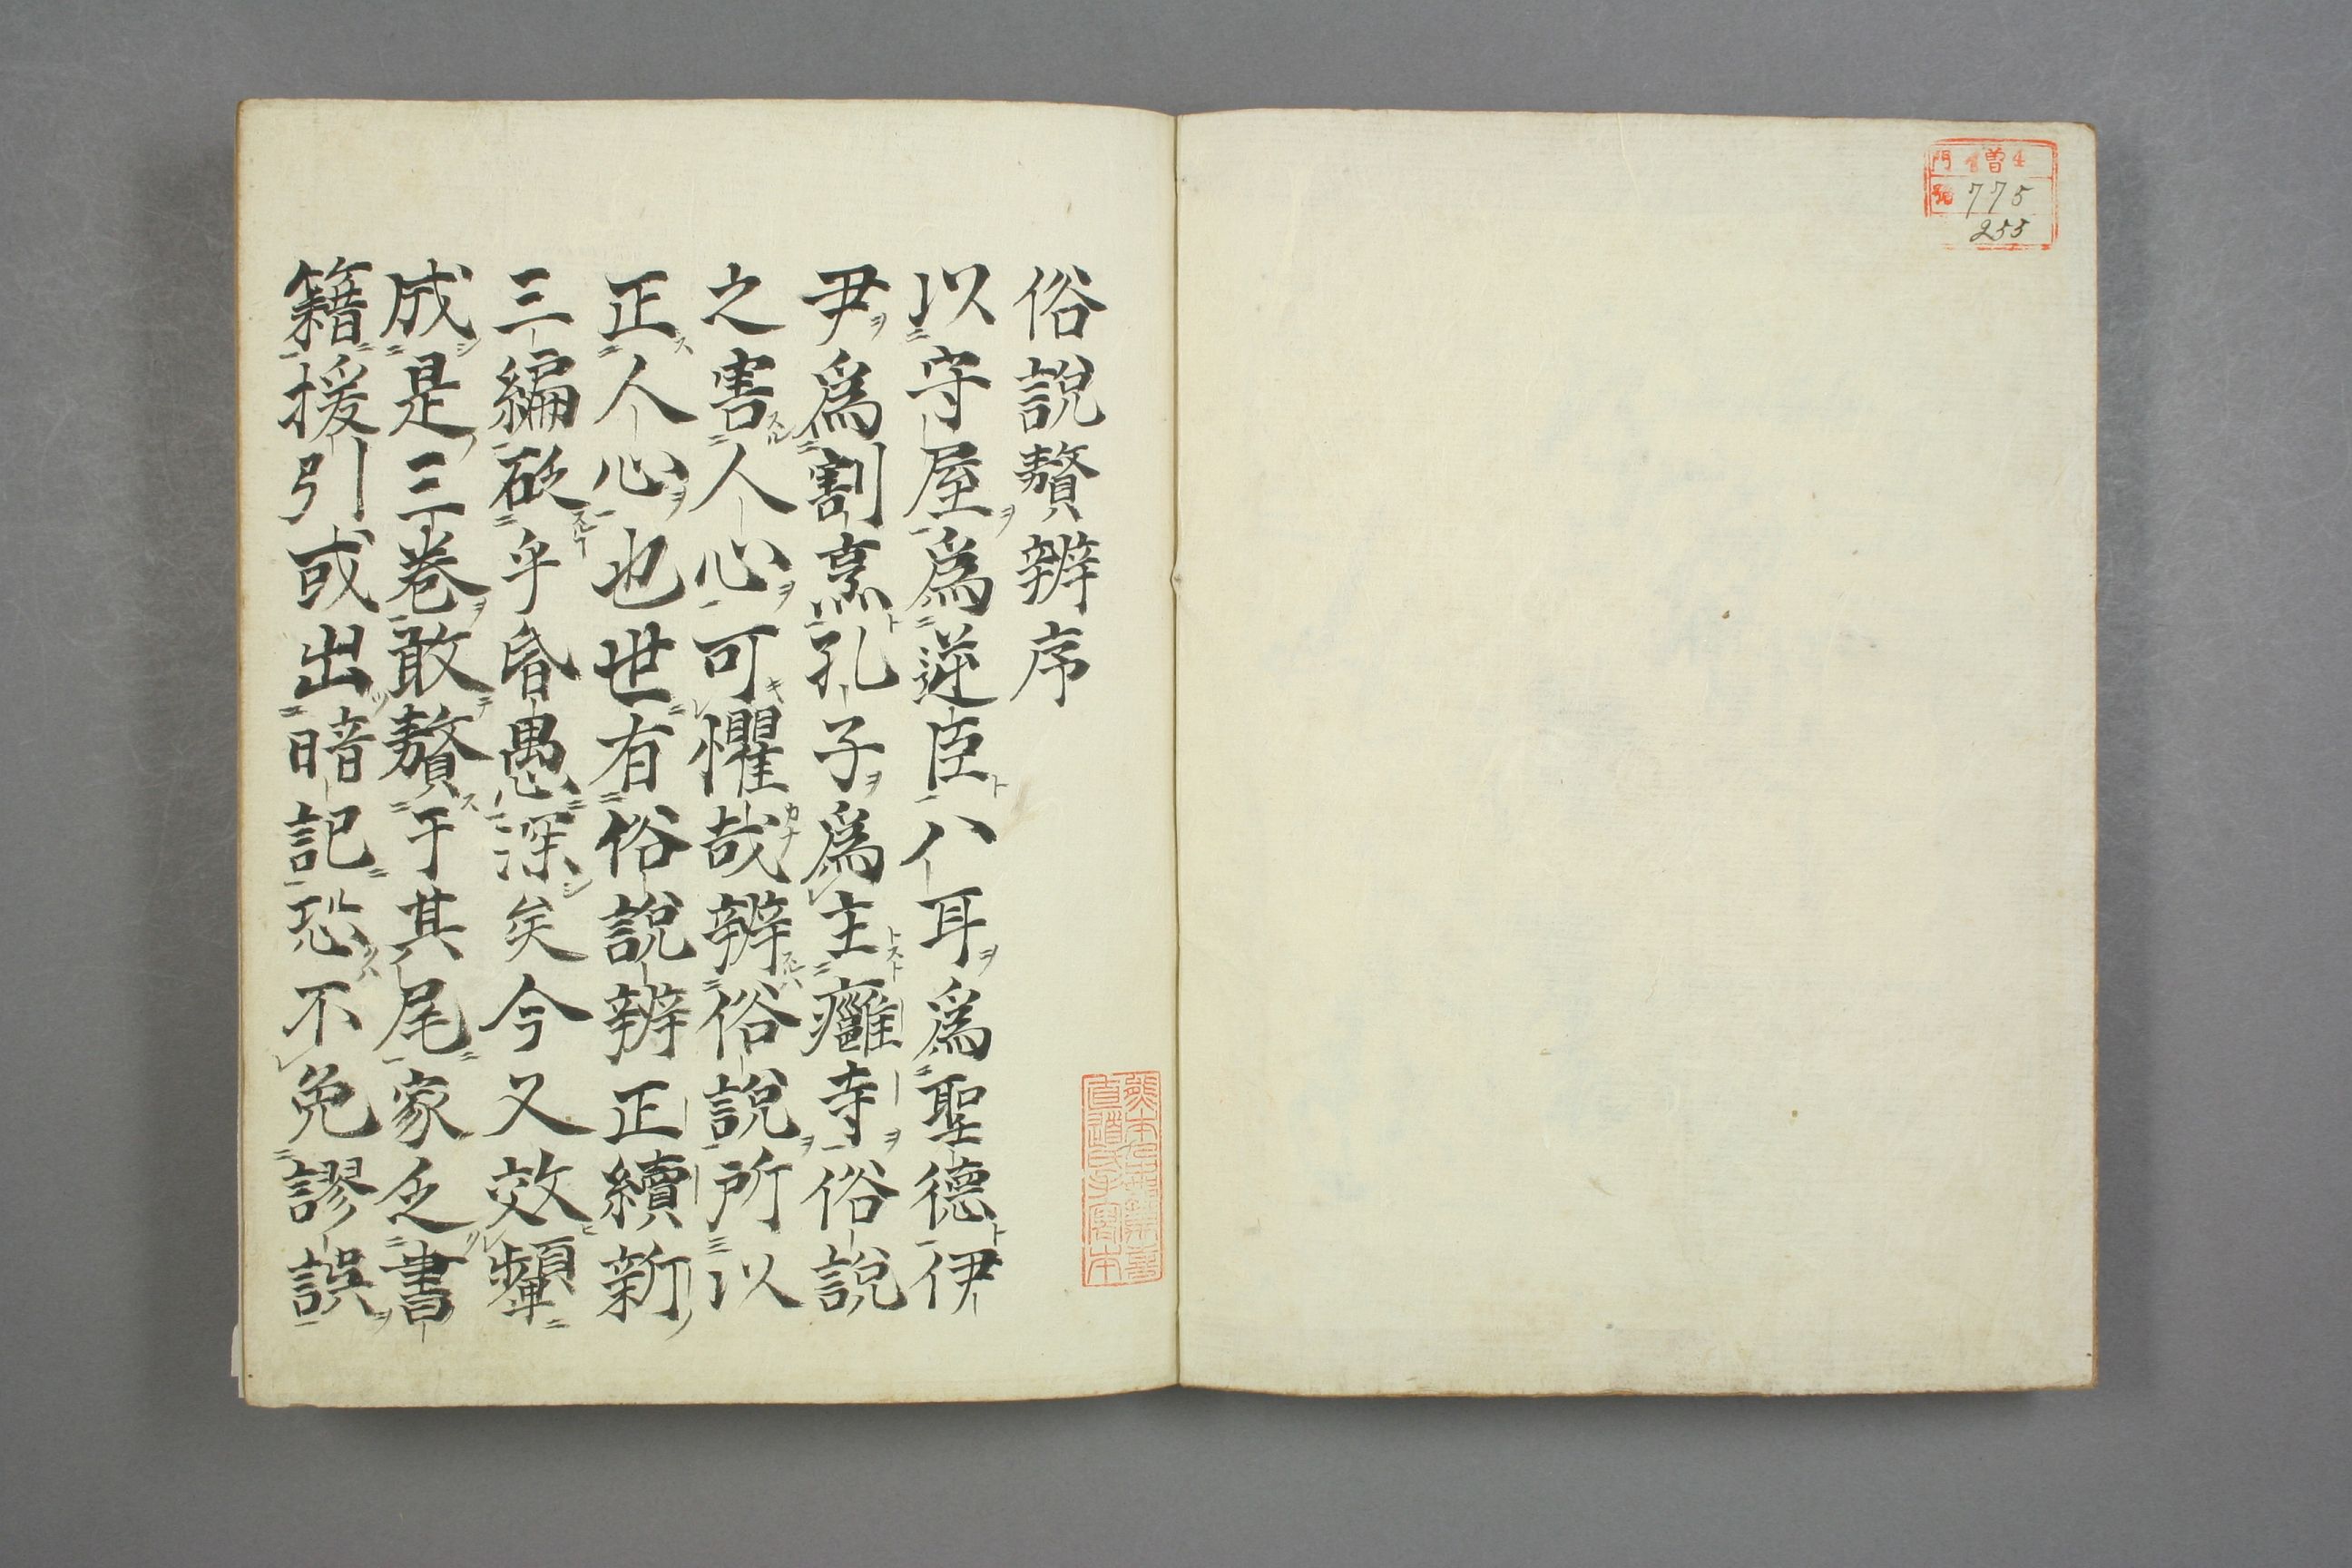 門 曽 4
號 775
255
俗說贅辨序
以守屋爲逆臣八耳爲聖德伊
尹爲割烹孔子爲主癰寺俗說
之害人心可懼哉辨俗說所以
正人心也世有俗說辨正續新
三編砭乎昏愚深矣今又效顰
成是三巻敢贅于其尾家乏書
籍援引或出暗記恐不免謬誤